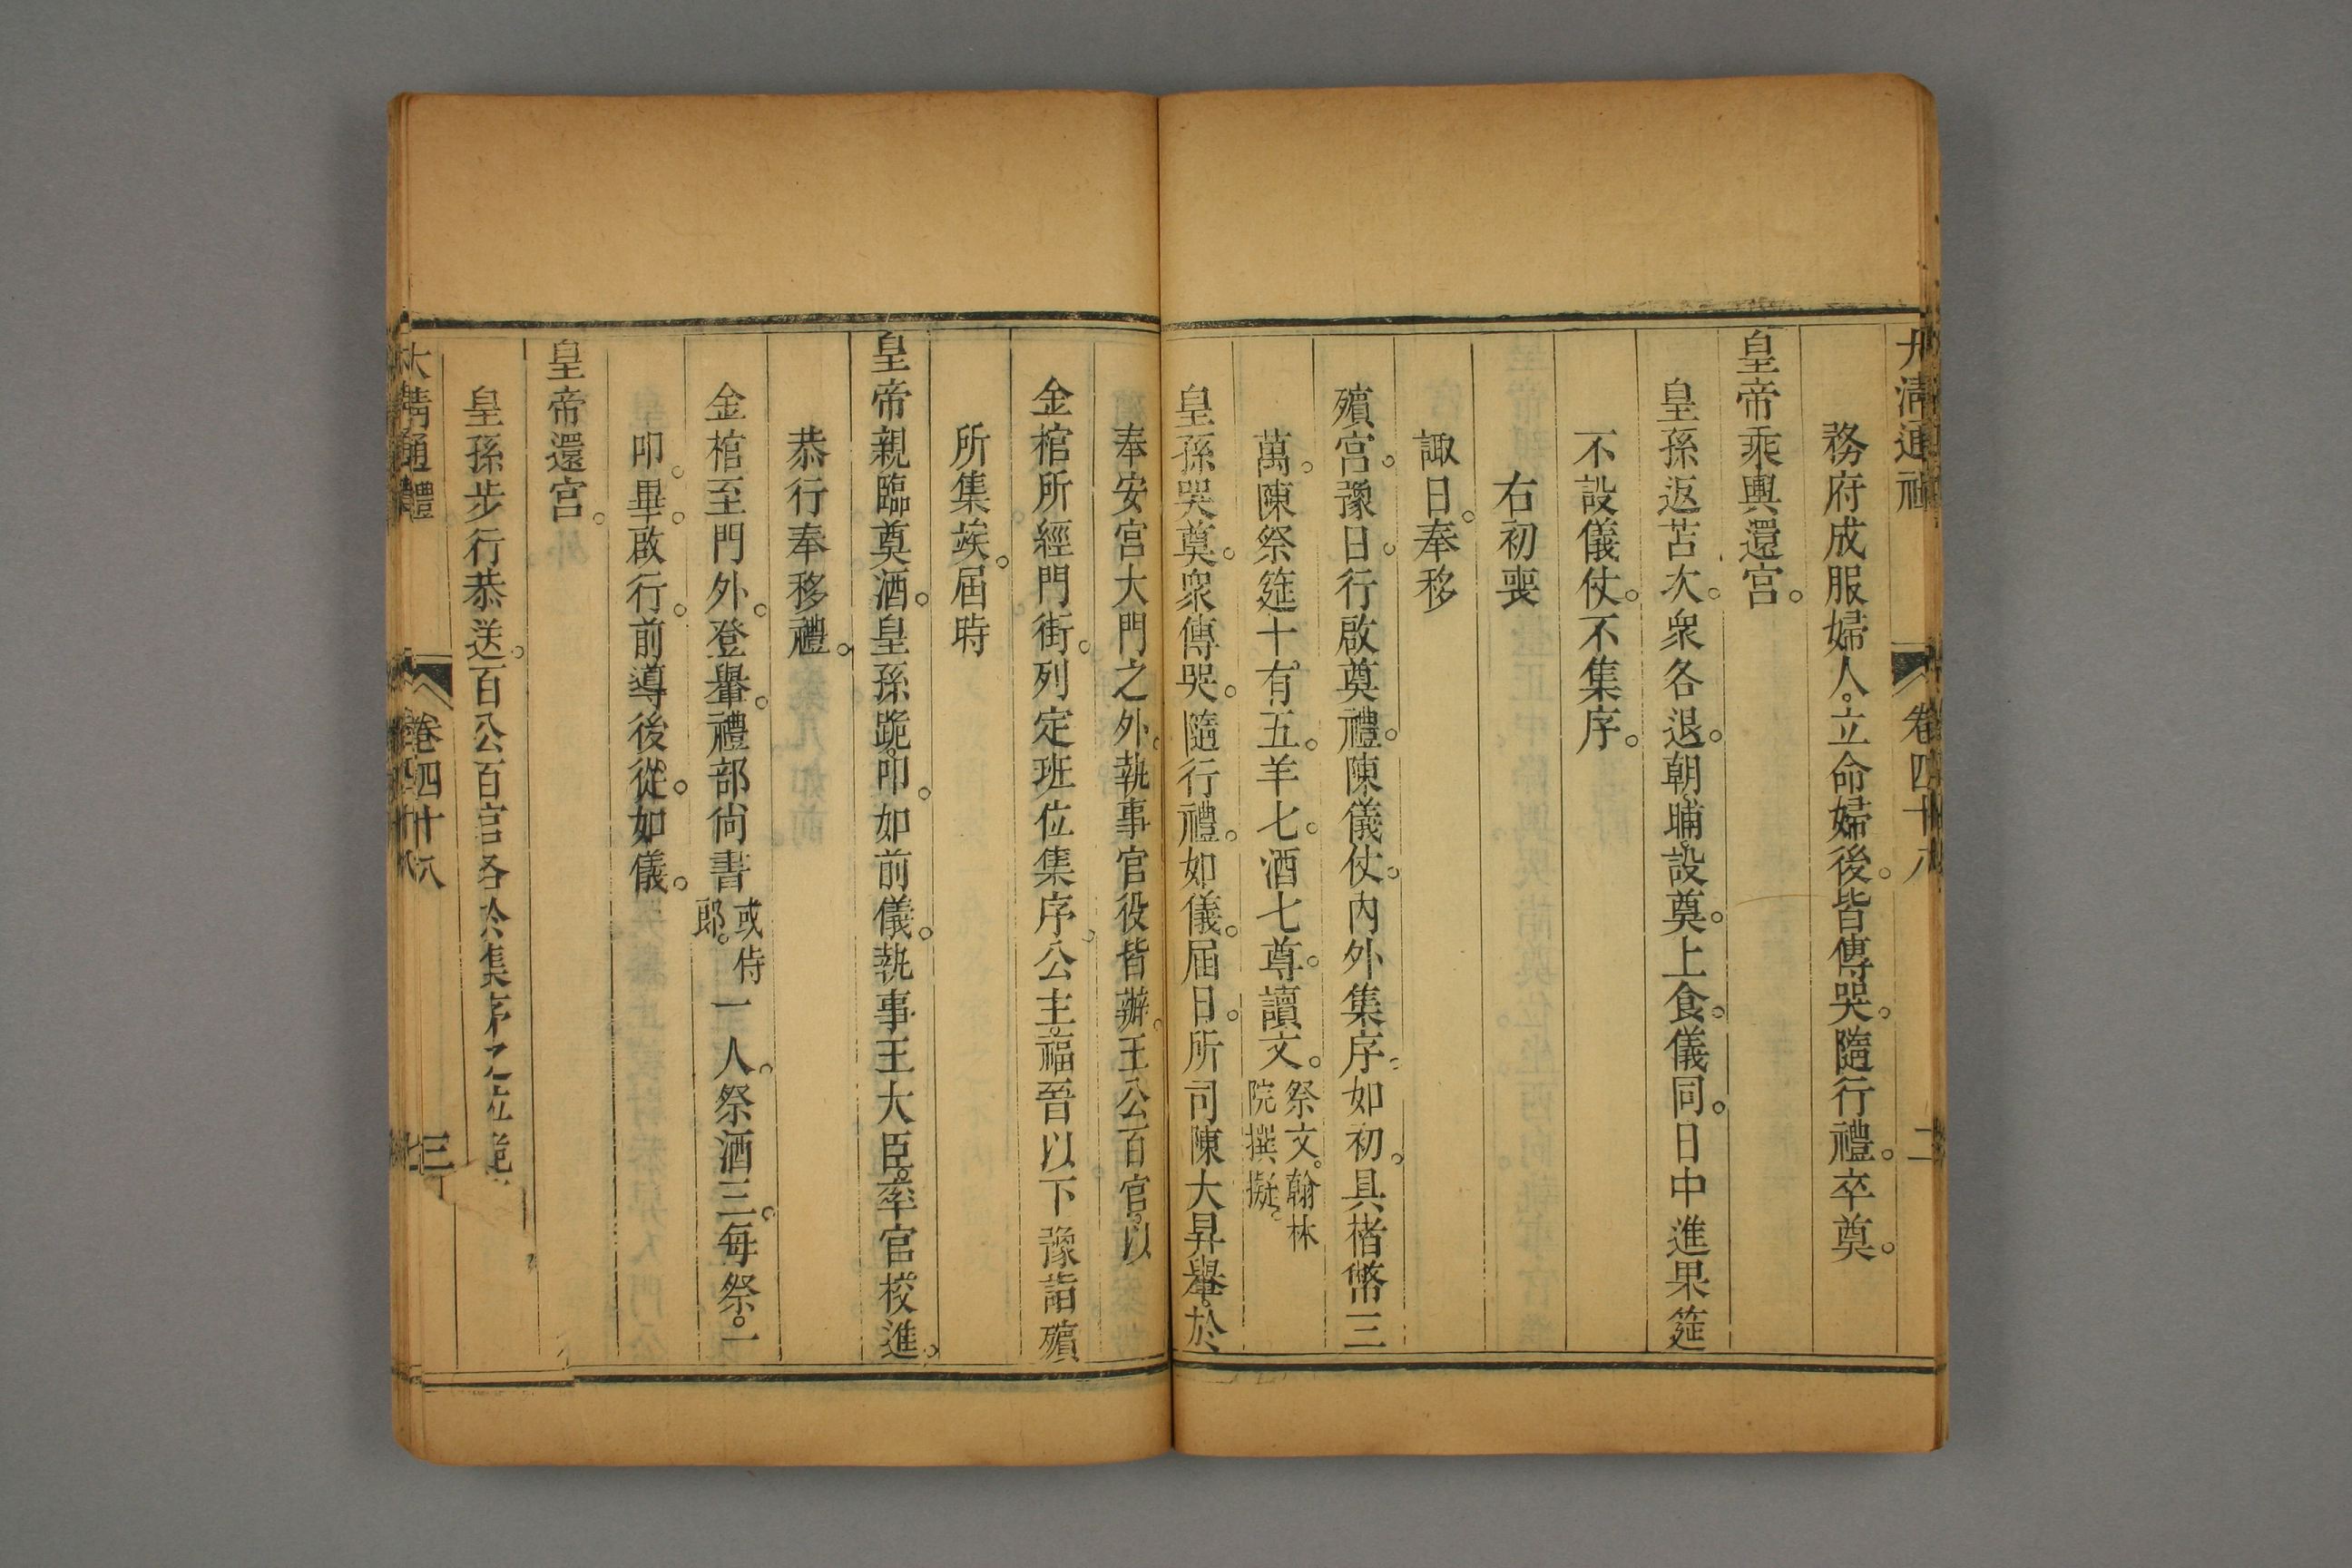 大淸通禮 卷四十八 二
務府成服婦人。立命婦後。皆傳哭。隨行禮。卒奠。
皇帝乘輿還宮。
皇孫返苫次。衆各退。朝晡。設奠。上食。儀同。日中進果筵
不設儀仗。不集序。
右初喪
諏日。奉移
殯宮。豫日。行啟奠禮。陳儀仗。內外集序。如初。具楮幣三
萬。陳祭筵十有五。羊七。酒七尊。讀文。祭文。翰林
院撰擬。
皇孫哭奠。衆傳哭。隨行禮。如儀。屆日。所司陳大昇轝。於
奉安宮大門之外。執事官役皆辦。王公百官。以
金棺所經門街。列定班位集序。公主。福晉以下豫詣殯
所集竢。屆時
皇帝親臨奠酒。皇孫跪。叩。如前儀。執事王大臣。率官校進。
恭行奉移禮。
金棺至門外。登轝。禮部尙書或侍
郎。一人。祭酒三。每祭。一
叩。畢。啟行。前導後從。如儀。
皇帝還宮。
皇孫步行恭送。百公百官各於集序之位
大淸通禮 卷四十八 三